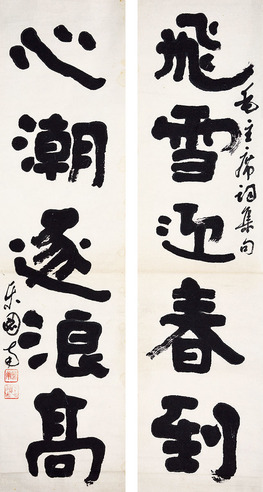 飛雪迎春到
毛主席詞集句
心潮逐浪高